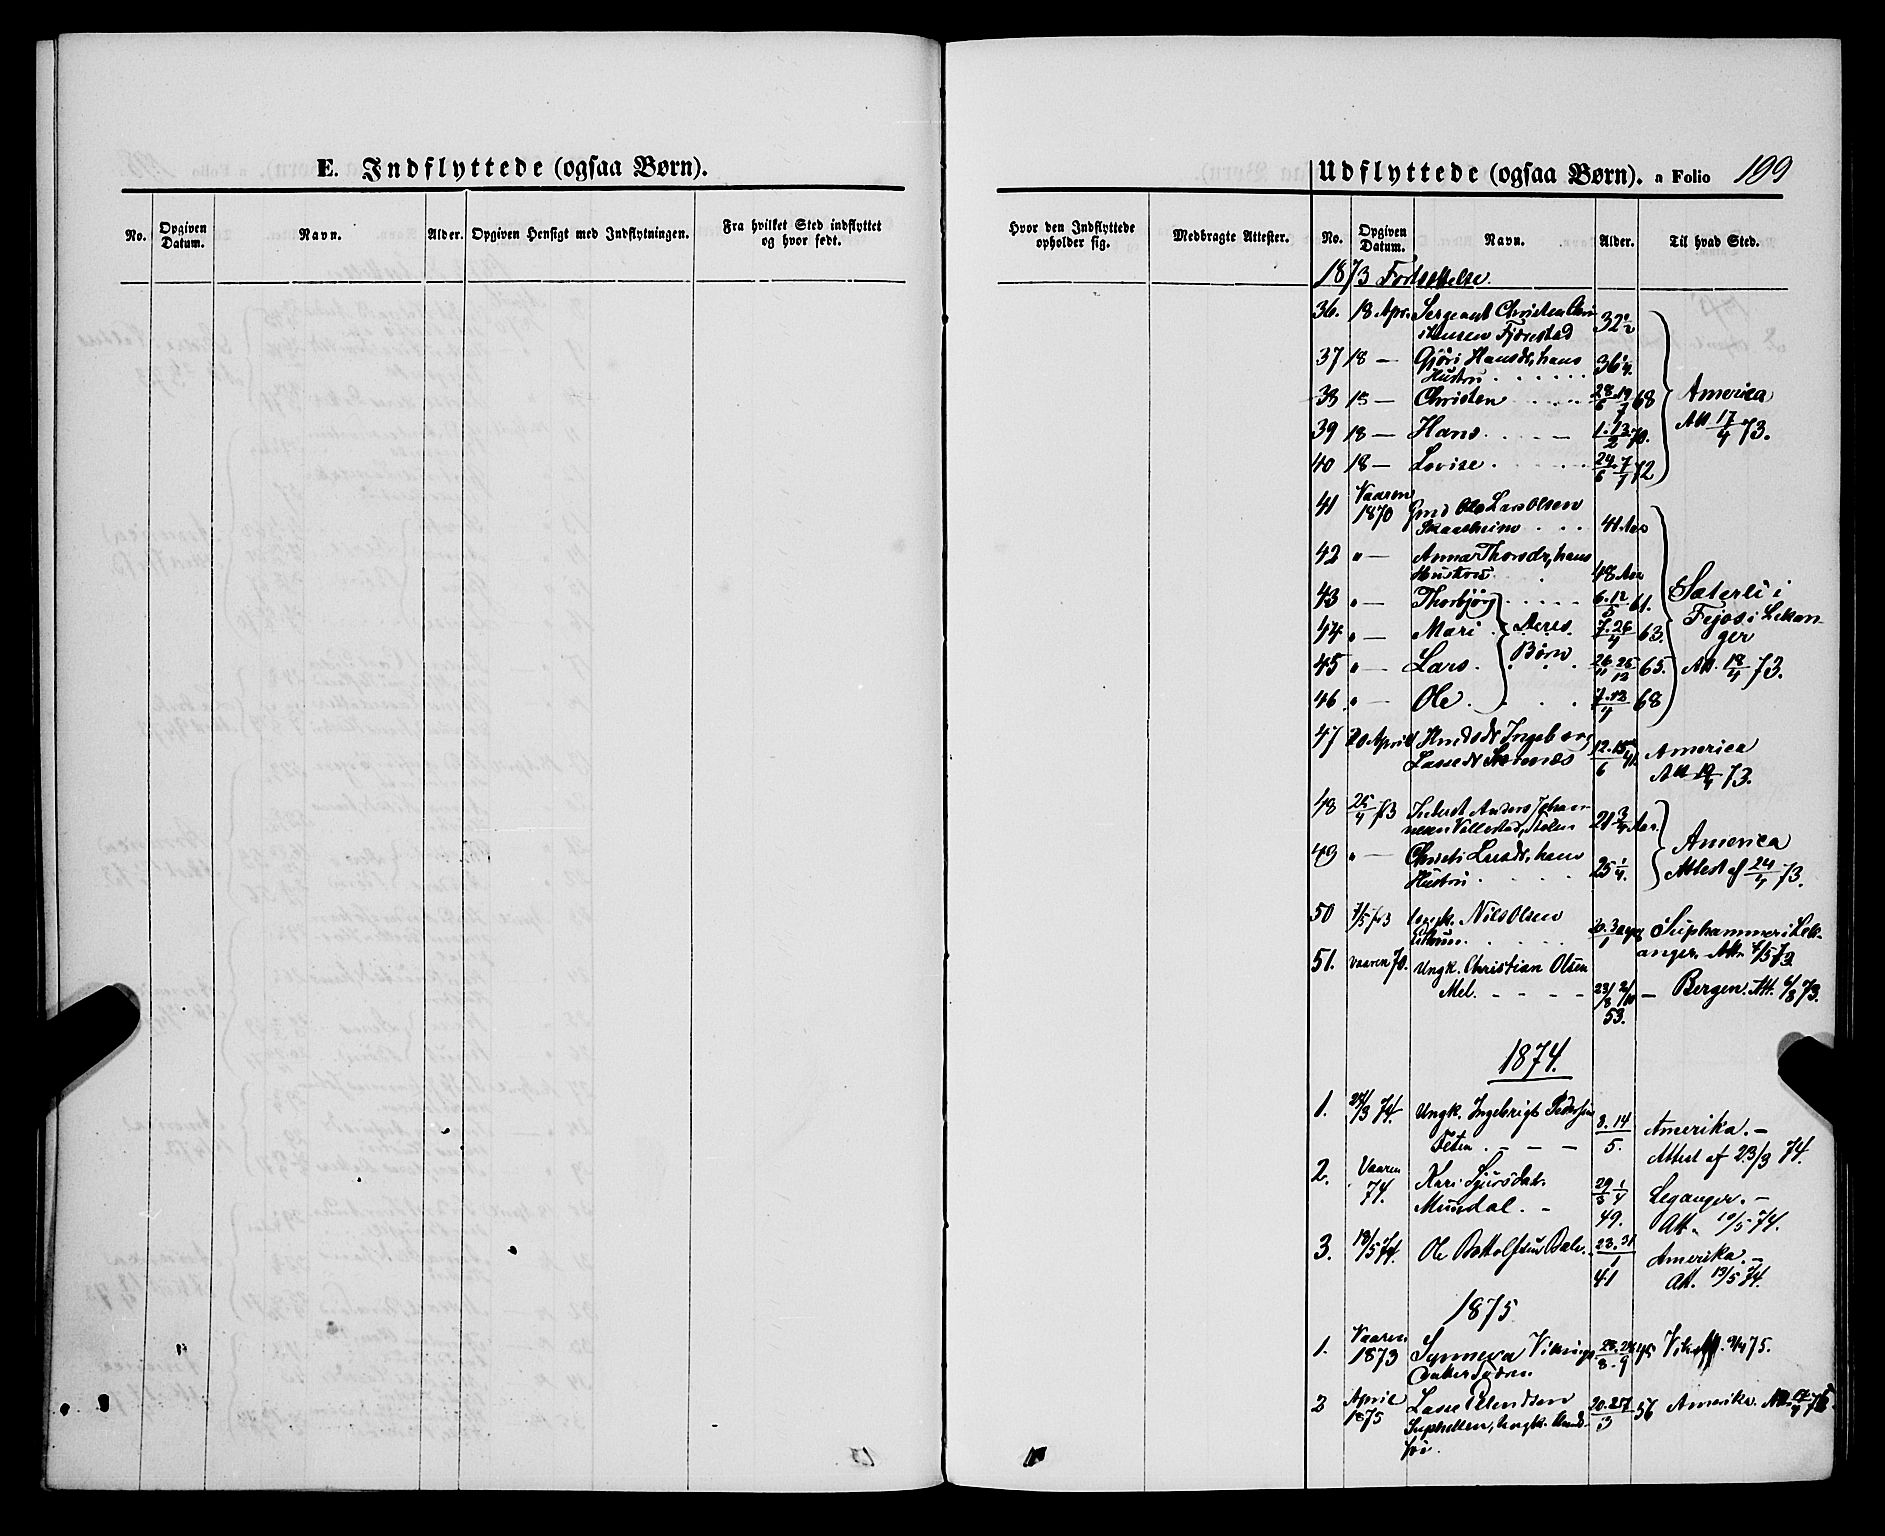 E. Indflyttede (ogsaa Børn).
No.
Opgiven Datum.
Navn.
Alder.
Opgiven Hensigt med Indflytningen.
Fra hvilket Sted indflyttet og hvor født.
Udflyttede (ogsaa Børn). a Folio 199
Hvor den Indflyttede opholder sig.
Medbragte Attester.
No.
Opgiven Datum.
Navn.
Alder.
Til hvad Sted.
1873 Fortsættelse.
36. 18 Apr. Sergeant Christen Chri-
stensen Fjærestad 32 1/2
37 18 — Gjöri Hansdr, hans
Hustru 36 1/4
38 18 — Christen 28/6 19/7 68
America
39 18 — Hans 1.13/2 70.
Att 17/4 73.
40 18 — Lovise 24/6 7/7 72
41 Vaaren
1870 Gmd Ole Lars Olsen
41 Aar
42 " — Anna Thorsdr, hans
Hustru 48 Aar
43 " — Thorbjör 6.12/5 61.
Sæterli i
44 " — Mari Deres 7.26/4 63.
Fejos i Lekan-
ger
45 " — Lars Børn 26/11 26/12 65.
Att. 18/4 73.
46 " — Ole 7.12/4 68
47 20 April Ingeborg
Lassedr 12.15/6 41. America
Att 19/4 73.
48 25/4 73 Inderst Anders Johan-
nesen 28 3/4 Aar
America
49 " — Christi Larsdr, hans
Hustru 25 1/4. Attest af 24/4 73.
50 4/5 73 Ungk. Nils Olsen
Suphammer i Lek-
anger. Att. 4/5 73
51. Vaaren 70. Ungk. Christian Olsen
Mel. 23/8 2/10 53. Bergen. Att. 6/8 73.
1874.
1. 24/3 74. Ungk. Ingebrigt Pedersen
Feten 8.14/5. Amerika. —
Attest af 23/3 74.
2. Vaaren
74. Kari Sjursdatr.
Mundal. 29/3 1/4 49. Leganger. —
Att. 10/5 74.
3. 13/5 74. Ole Botolfsen Bale. 23.31/1 41 Amerika. —
Att. 13/5 74.
1875
1. Vaaren
1873 Synneva Vikings-
datter 45 Vik
75.
2 April
1875 Lasse Erlendsen
Suphellen, Ungk. 20.25/3 56 Amerika.